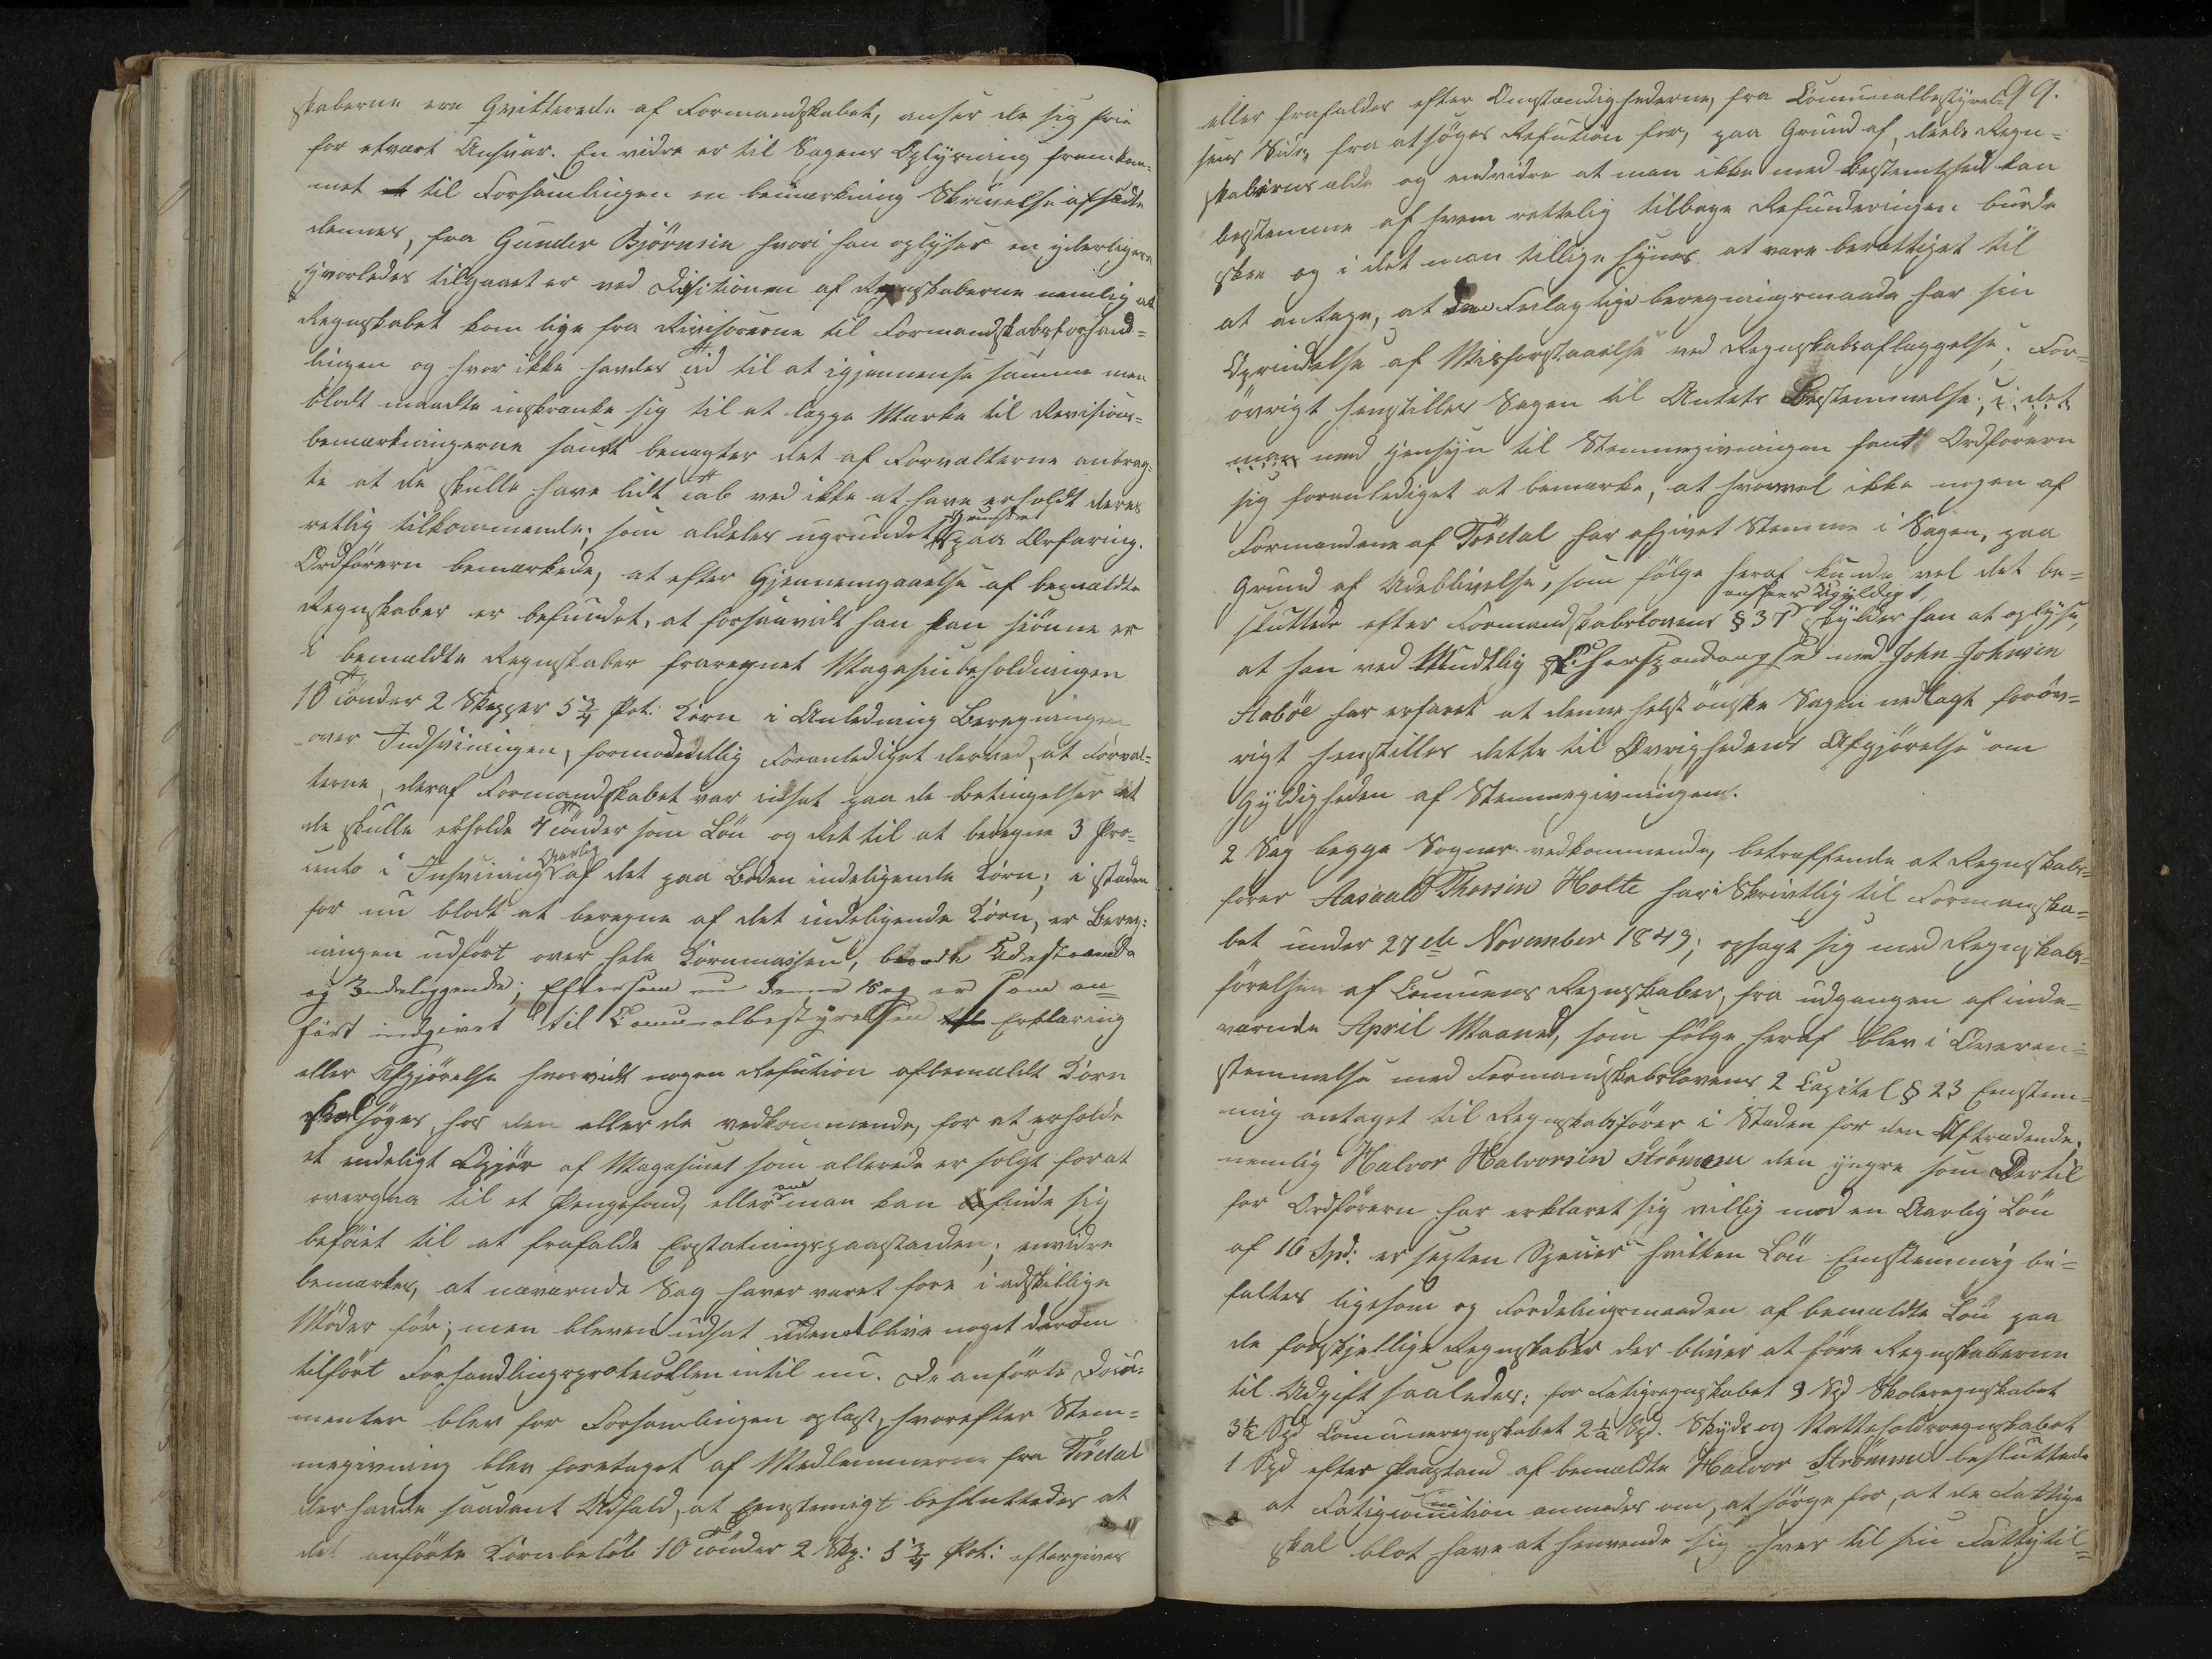 skaberne ere Qvitterede af Formandskabet, anser de sig frie
for etvært Ansvar. En vidre er til Sagens Oplysning fremkom-
met til Forsamlingen en bemærkning Skrivelse
dennes, fra Gunder Björnsen hvori han oplyser en yderligere
hvorledes tilgaaet er ved af Regnskaberne nemlig at
Regnskabet kom lige fra Revisorerne til Formandskabsforhand-
lingen og hvor ikke havdes Tid til at igjennemse samme men
blodt maadte inskrænke sig til at lægge Mærke til Revisions-
bemærkningerne samt benægter det af Forvalterne anbrag-
te at de skulle have lidt Tab ved ikke at have erholdt deres
retlig tilkommende; som aldeles ugrundet grundet paa Erfaring.
Ordförern bemærkede, at efter Gjennemgaaelse af bemældte
Regnskaber er befundet, at forsaavidt han kan skjönne er
i bemældte Regnskaber fraregnet Magasinbeholdningen
10 Tönder 2 Skepper 5 3/4 Pot: Korn i Anledning Beregningen
over Indsvinningen, formodentlig Foranlediget derved, at Forval-
terne, deraf Formandskabet var insat paa de Betingelser at
de skulle erholde 4 Tönder som Lön og Ret til at beregne 3 Pro-
cento i Insvining Aarlig af det paa Boden indeligende Korn; i staden
for nu blodt at beregne af det indeligende Korn, er Bereg-
ningen udfört over hele Kornmassen, baade Udestaaende
og Indeliggende; Eftersom nu denne Sag er som an-
fört indgivet til Communalbestyrelsen Erklæring
eller Afgjörelse hvorvidt nogen Refution afbemældt Korn
skal söges, hos den eller de vedkommende, for at erholde
et endeligt Opjör af Magasinet som allerede er solgt for at
overgaa til et Pengefond, eller om man kan finde sig
beföiet til at frafalde Erstatningspaastanden; envidre
bemærkes, at nærværende Sag haver været fore i adskillige
Möder för; men bleven udsat uden at blive noget derom
tilfört Forhandlingsprotocollen intil nu. De anförte Docu-
menter blev for Forsamlingen oplæst, hvorefter Stem-
megivning blev foretaget af Medlemmerne fra Tördal
der havde saadant Udfald, at Eenstemigt besluttedes at
det anförte Kornbelöb 10 Tönder 2 Skp: 5 3/4 Pot: eftergives
99.
eller frafaldes efter Omstændighederne, fra Communalbestyrel-
sens Side, fra at söges Refution for, paa Grund af, deels Regn-
skabernes ælde og endvidre at man ikke med Bestemthed kan
bestemme af hvem rettelig tilbage Refunderingen burde
skee og i det man tillige synes at være berettiget til
at antage, at den Feilagtige beregningsmaade har sin
Oprindelse af Misforstaaelse ved Regnskabsaflæggelse. For-
övrigt henstilles Sagen til Amtets Bestemmelse; i det
man med Hensyn til Stemmegivningen fant Ordförern
sig foranlediget at bemærke, at hvorvel ikke nogen af
Formændene af Tördal har afgivet Stemme i Sagen, paa
Grund af Udeblivelse, som fölge heraf kunde vel det be-
sluttede efter Formandskabslovens § 37 ansees Ugyldigt, skylder han at oplyse,
at han ved Mundtlig med John Johnsen
Aaböe har erfaret at denne helst önske Sagen nedlagt foröv-
rigt henstilles dette til Övrighedens Afgjörelse om
Gyldigheden af Stemmegivningen.
2 Sag begge Sogner vedkommende, betræffende at Regnskabs-
förer Aasuald Thorsen Holte har Skrivtlig til Formanska-
bet under 27de November 1849; opsagt sig med Regnskabs-
förelsen af Communens Regnskaber, fra udgangen af inde-
værende April Maaned, som fölge heraf blev i Overen-
stemmelse med Formandskabslovens 2 Capitel § 23 Eenstem-
mig antaget til Regnskabsförer i Staden for den Aftrædende,
nemlig Halvor Halvorsen Strömme den yngre som Dertil
for Ordförern har erklæret sig villig mod en Aarlig Lön
af 16 Spd: er sexten Specier hvilken Lön Eenstemmig bi-
faltes ligesom og Fordelingsmaaden af bemældte Lön paa
de forskjellige Regnskaber der bliver at före Regnskaberne
til Udgift saaledes: for Fatigregnskabet 9 Spd Skoleregnskabet
3 1/2 Spd Communeregnskabet 2 1/2 Spd. Skyds og Rætteholdsregnskabet
1 Spd efter Paastand af bemældte Halvor Strömme besluttede
at Fatigcomition anmodes om, at sörge for, at de Fattige
skal blot have at henvende sig hver til sin Fattigtil-